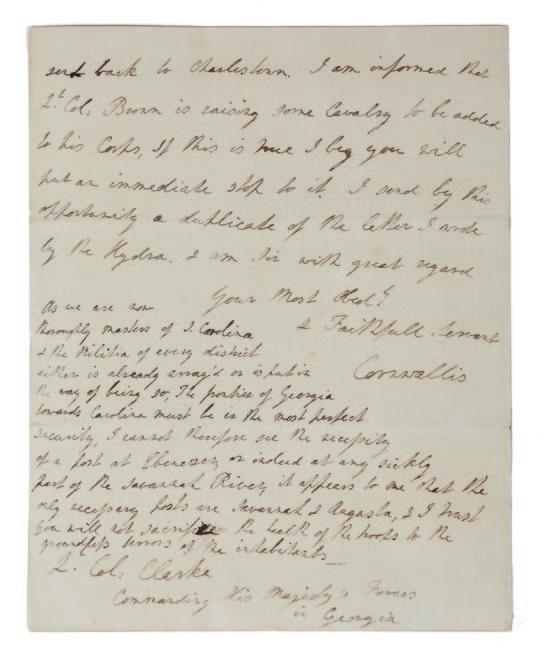 sent back to Charlestown. I am informed that
Lt. Col: Brown is raising some Cavalry to be added
to his Corps, if this is true I beg you will
put an immediate stop to it. I send by this
opportunity a duplicate of the letter I wrote
by the Hydra. & am Sir with great regard
Your Most Obedt
& Faithfull Servant
Cornwallis
As we are now
thoroughly masters of S. Carolina
& the Militia of every district
either is already array'd or is put in
the way of being so, The frontier of Georgia
towards Carolina must be in the most perfect
security, I cannot therefore see the necessity
of a post at Ebenezer, or indeed at any sickly
part of the Savannah River, it appears to me that the
only necessary posts are Savannah & Augusta, & I trust
you will not sacrifice the health of the troops to the
groundless terrors of the inhabitants—
Lt. Col: Clarke
Commanding His Majesty's Forces
in Georgia